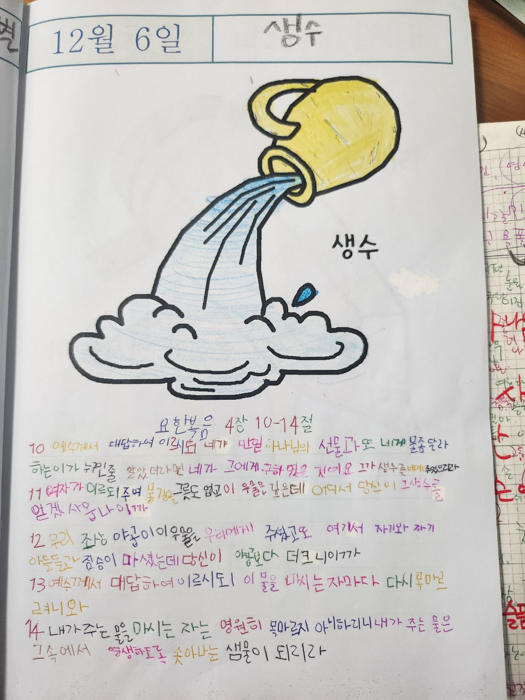 12월 6일
생수
생수
요한복음 4장 10-14절
10 예수께서 대답하여 이르시되 네가 만일 하나님의 선물과 또 네게 물좀 달라
하는이가 누구인줄 알았더라면 네가 그에게 구하였을 것이요 그가 생수를 네게 주었으리라
11 여자가 이르되 주여 물길을 그릇도 없고 이 우물은 깊은데 어디서 당신이 그 생수를
얻겠사옵나이까
12 우리 조상 야곱이 이 우물을 우리에게 주셨고 또 여기서 자기와 자기
아들들과 짐승이 마셨는데 당신이 야곱보다 더 크니이까
13 예수께서 대답하여 이르시되 이 물을 마시는 자마다 다시 목마르
려니와
14 내가 주는 물을 마시는 자는 영원히 목마르지 아니하리니 내가 주는 물은
그 속에서 영생하도록 솟아나는 샘물이 되리라